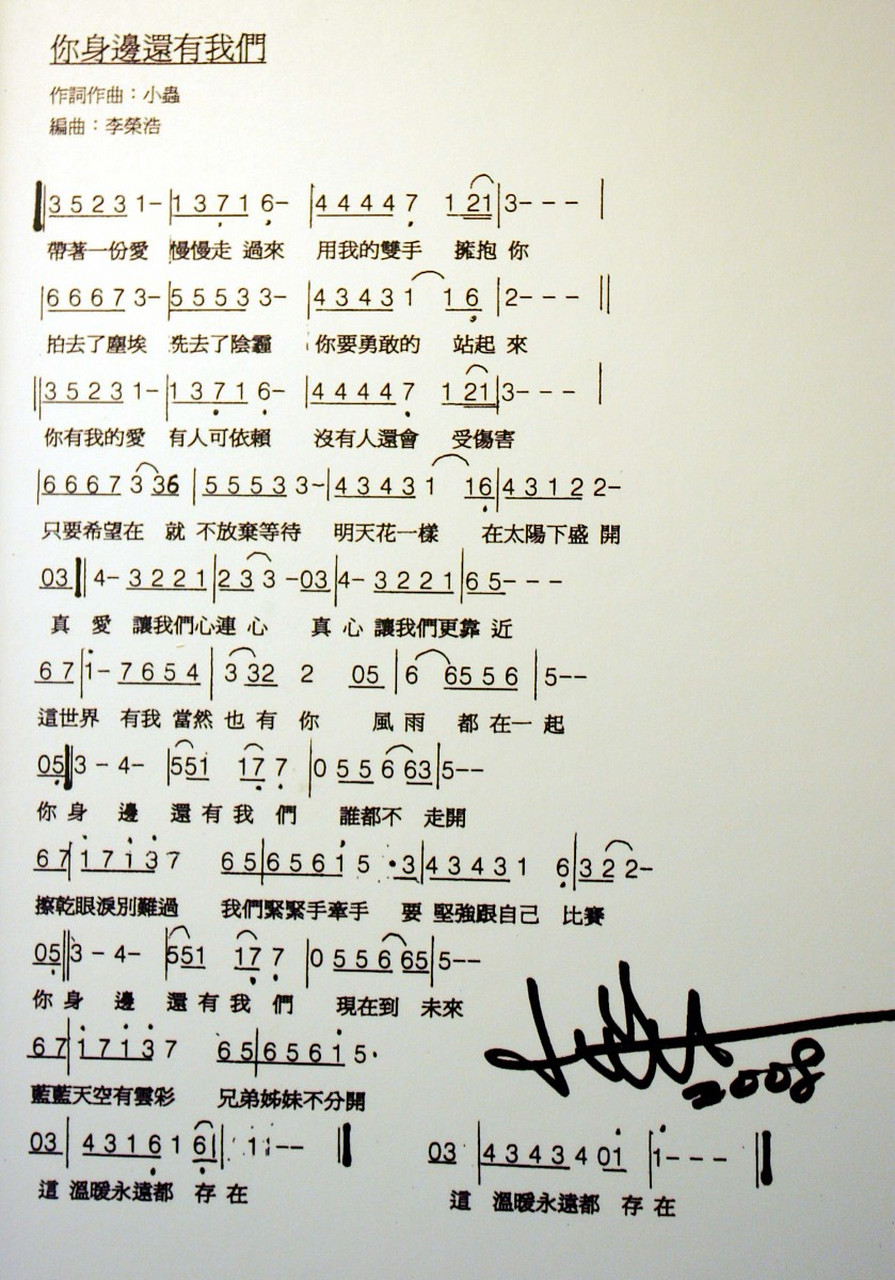 你身邊還有我們
作詞作曲：小蟲
編曲：李榮浩
3 5 2 3 1- 1 3 7 1 6- 4 4 4 4 7 1 21 3- - -
帶著一份愛 慢慢走 過來 用我的雙手 擁抱 你
6 6 6 7 3- 5 5 5 3 3- 4 3 4 3 1 1 6 2- - -
拍去了塵埃 洗去了陰霾 你要勇敢的 站起 來
3 5 2 3 1- 1 3 7 1 6- 4 4 4 4 7 1 21 3- - -
你有我的愛 有人可依賴 沒有人還會 受傷害
6 6 6 7 3 36 5 5 5 3 3- 4 3 4 3 1 16 4 3 1 2 2-
只要希望在 就 不放棄等待 明天花一樣 在太陽下盛 開
03 4- 3 2 2 1 2 3 3 -03 4- 3 2 2 1 6 5- - -
真 愛 讓我們心連 心 真 心 讓我們更靠 近
6 7 1- 7 6 5 4 3 32 2 05 6 65 5 6 5--
這世界 有我 當然 也 有 你 風 雨 都 在一 起
05 3 - 4- 551 17 7 0 5 5 6 63 5--
你 身 邊 還 有 我 們 誰都不 走開
6 7 1 7 1 3 7 6 5 6 5 6 1 5 · 3 4 3 4 3 1 6 3 2 2-
擦乾眼淚別難過 我們緊緊手牽手 要 堅強跟自己 比賽
05 3 - 4- 551 17 7 0 5 5 6 65 5--
你 身 邊 還 有 我 們 現在到 未來
6 7 1 7 1 3 7 6 5 6 5 6 1 5·
藍藍天空有雲彩 兄弟姊妹不分開
2008
03 4 3 1 6 1 61 1-- 03 4 3 4 3 4 01 1- - -
這 溫暖永遠都 存 在 這 溫暖永遠都 存 在